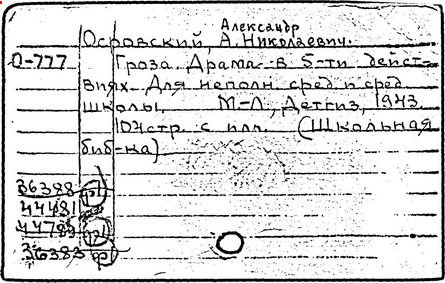 Александр
Осровский, А. Николаевич.
О-777 Гроза. Драма в 5-ти дейст-
виях. Для неполн. сред. и сред.
школы. М-Л, Детгиз, 1943.
104 стр. с илл. (Школьная
биб-ка)
36388
44481
44783
36383 ф